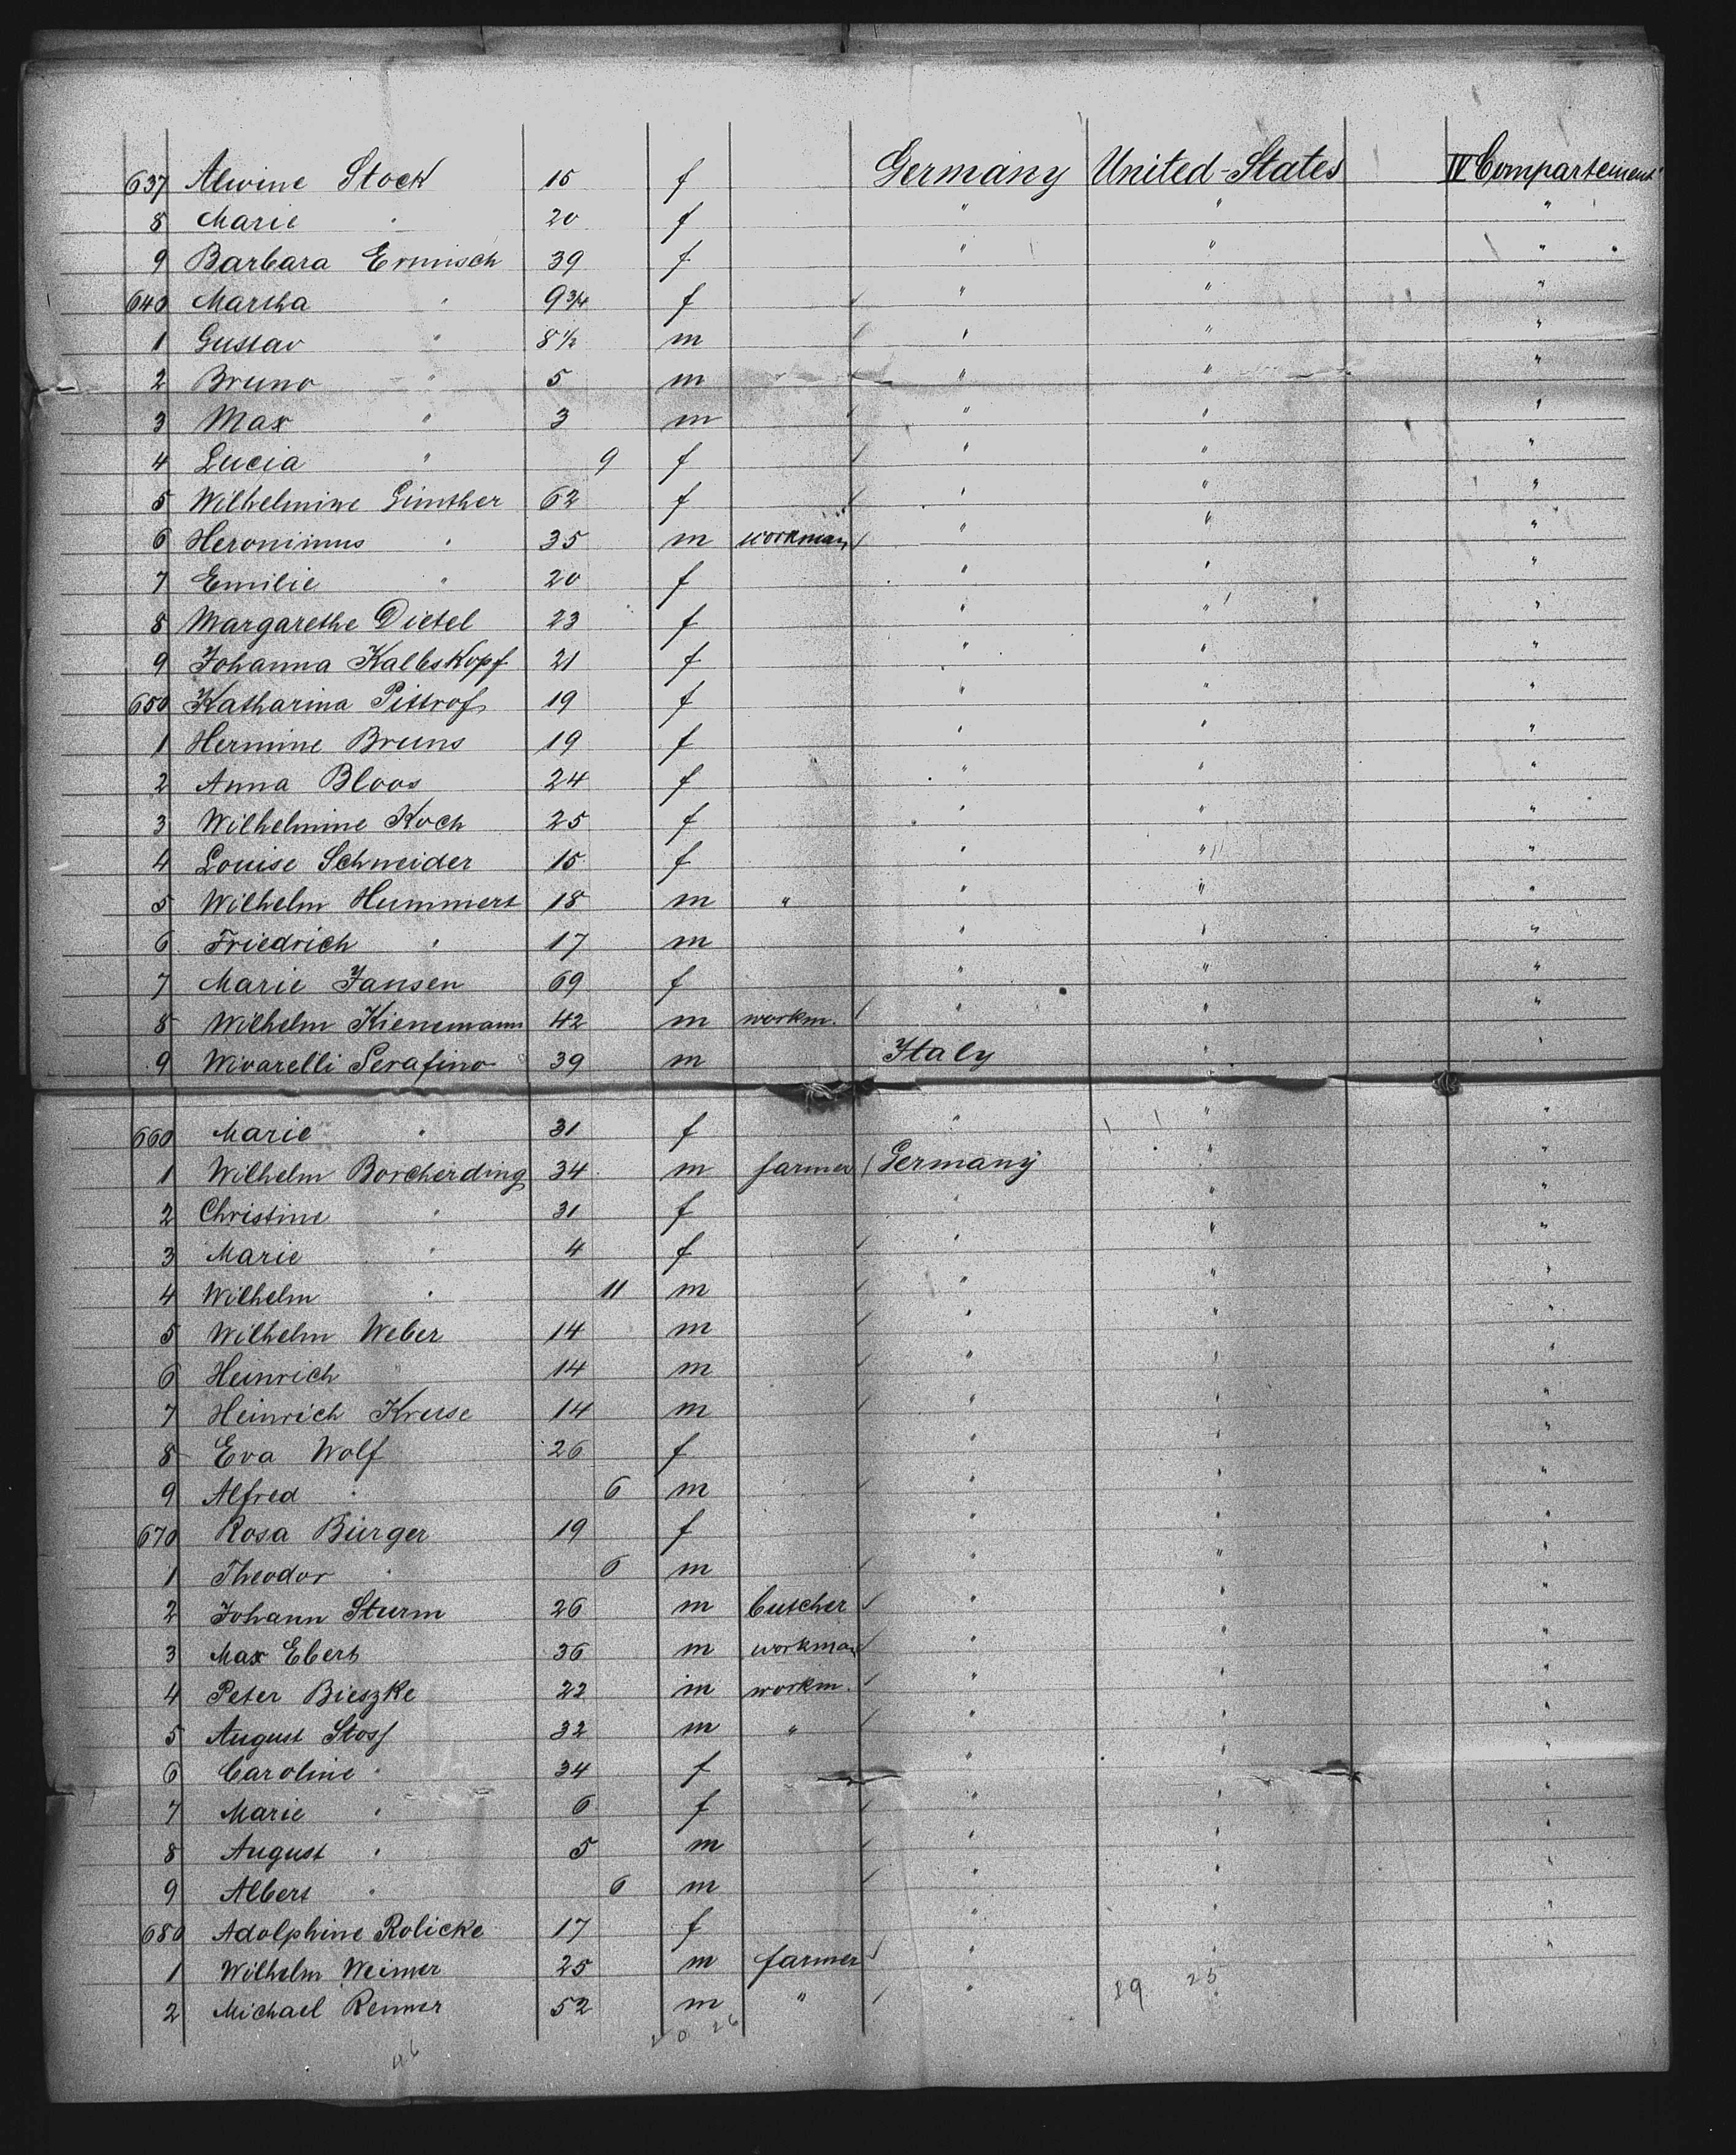 637 Alwine Stock 15 f Germany United-States IV Compartement
8 Marie " 20 f " " "
9 Barbara Ermisch 39 f " " "
640 Martha " 9 3/4 f " " "
1 Gustav " 8 1/2 m " " "
2 Bruno " 5 m " " "
3 Max " 3 m " " "
4 Lucia " 9 f " " "
5 Wilhelmine Günther 62 f " " "
6 Heronimus " 35 m workman " " "
7 Emilie " 20 f " " "
8 Margarethe Dietel 23 f " " "
9 Johanna Kalbskopf 21 f " " "
650 Katharina Pittrof 19 f " " "
1 Hermine Bruns 19 f " " "
2 Anna Bloos 24 f " " "
3 Wilhelmine Koch 25 f " " "
4 Louise Schneider 15 f " " "
5 Wilhelm Hummert 18 m " " " "
6 Friedrich " 17 m " " "
7 Marie Jansen 69 f " " "
8 Wilhelm Kienemann 42 m workm. " " "
9 Wivarelli Serafino 39 m Italy " "
660 Marie " 31 f " " "
1 Wilhelm Borcherding 34 m farmer Germany " "
2 Christine " 31 f " " "
3 Marie " 4 f " " "
4 Wilhelm " 11 m " " "
5 Wilhelm Weber 14 m " " "
6 Heinrich " 14 m " " "
7 Heinrich Kruse 14 m " " "
8 Eva Wolf 26 f " " "
9 Alfred " 6 m " " "
670 Rosa Bürger 19 f " " "
1 Theodor " 6 m " " "
2 Johann Sturm 26 m butcher " " "
3 Max Ebert 36 m workman " " "
4 Peter Bieszke 22 m workm. " " "
5 August Stoss 32 m " " " "
6 Caroline " 34 f " " "
7 Marie " 6 f " " "
8 August " 5 m " " "
9 Albert " 6 m " " "
680 Adolphine Rolicke 17 f " " "
1 Wilhelm Weimer 25 m farmer " " "
2 Michael Renner 52 m " " 29 25
46 26